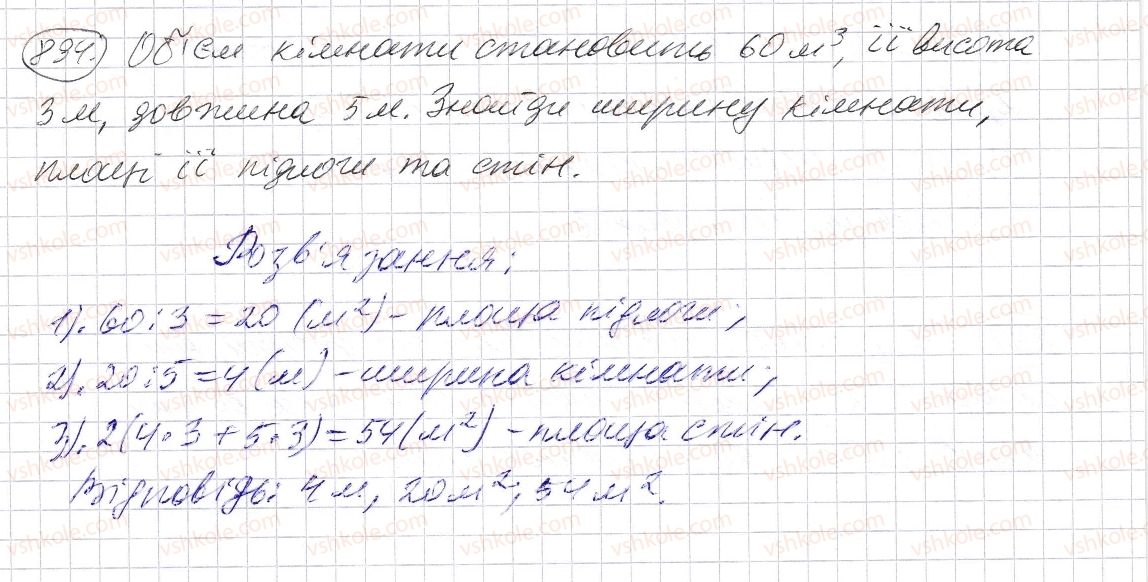 894. Об'єм кімнати становить 60 м³, її висота
3 м, довжина 5 м. Знайди ширину кімнати,
площі її підлоги та стін.
Розв'язання:
1). 60 : 3 = 20 (м²) - площа підлоги;
2). 20 : 5 = 4 (м) - ширина кімнати;
3). 2(4·3 + 5·3) = 54 (м²) - площа стін.
Відповідь: 4 м, 20 м², 54 м².